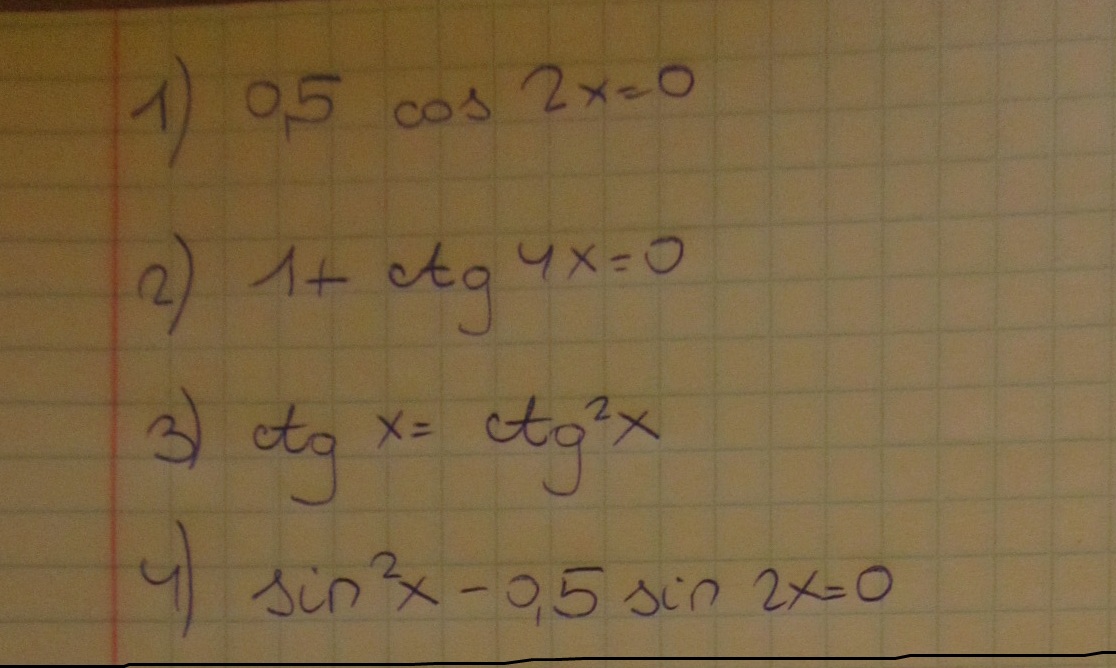 1) 0,5 cos 2x=0
2) 1+ ctg 4x=0
3) ctg x= ctg²x
4) sin²x - 0,5 sin 2x=0